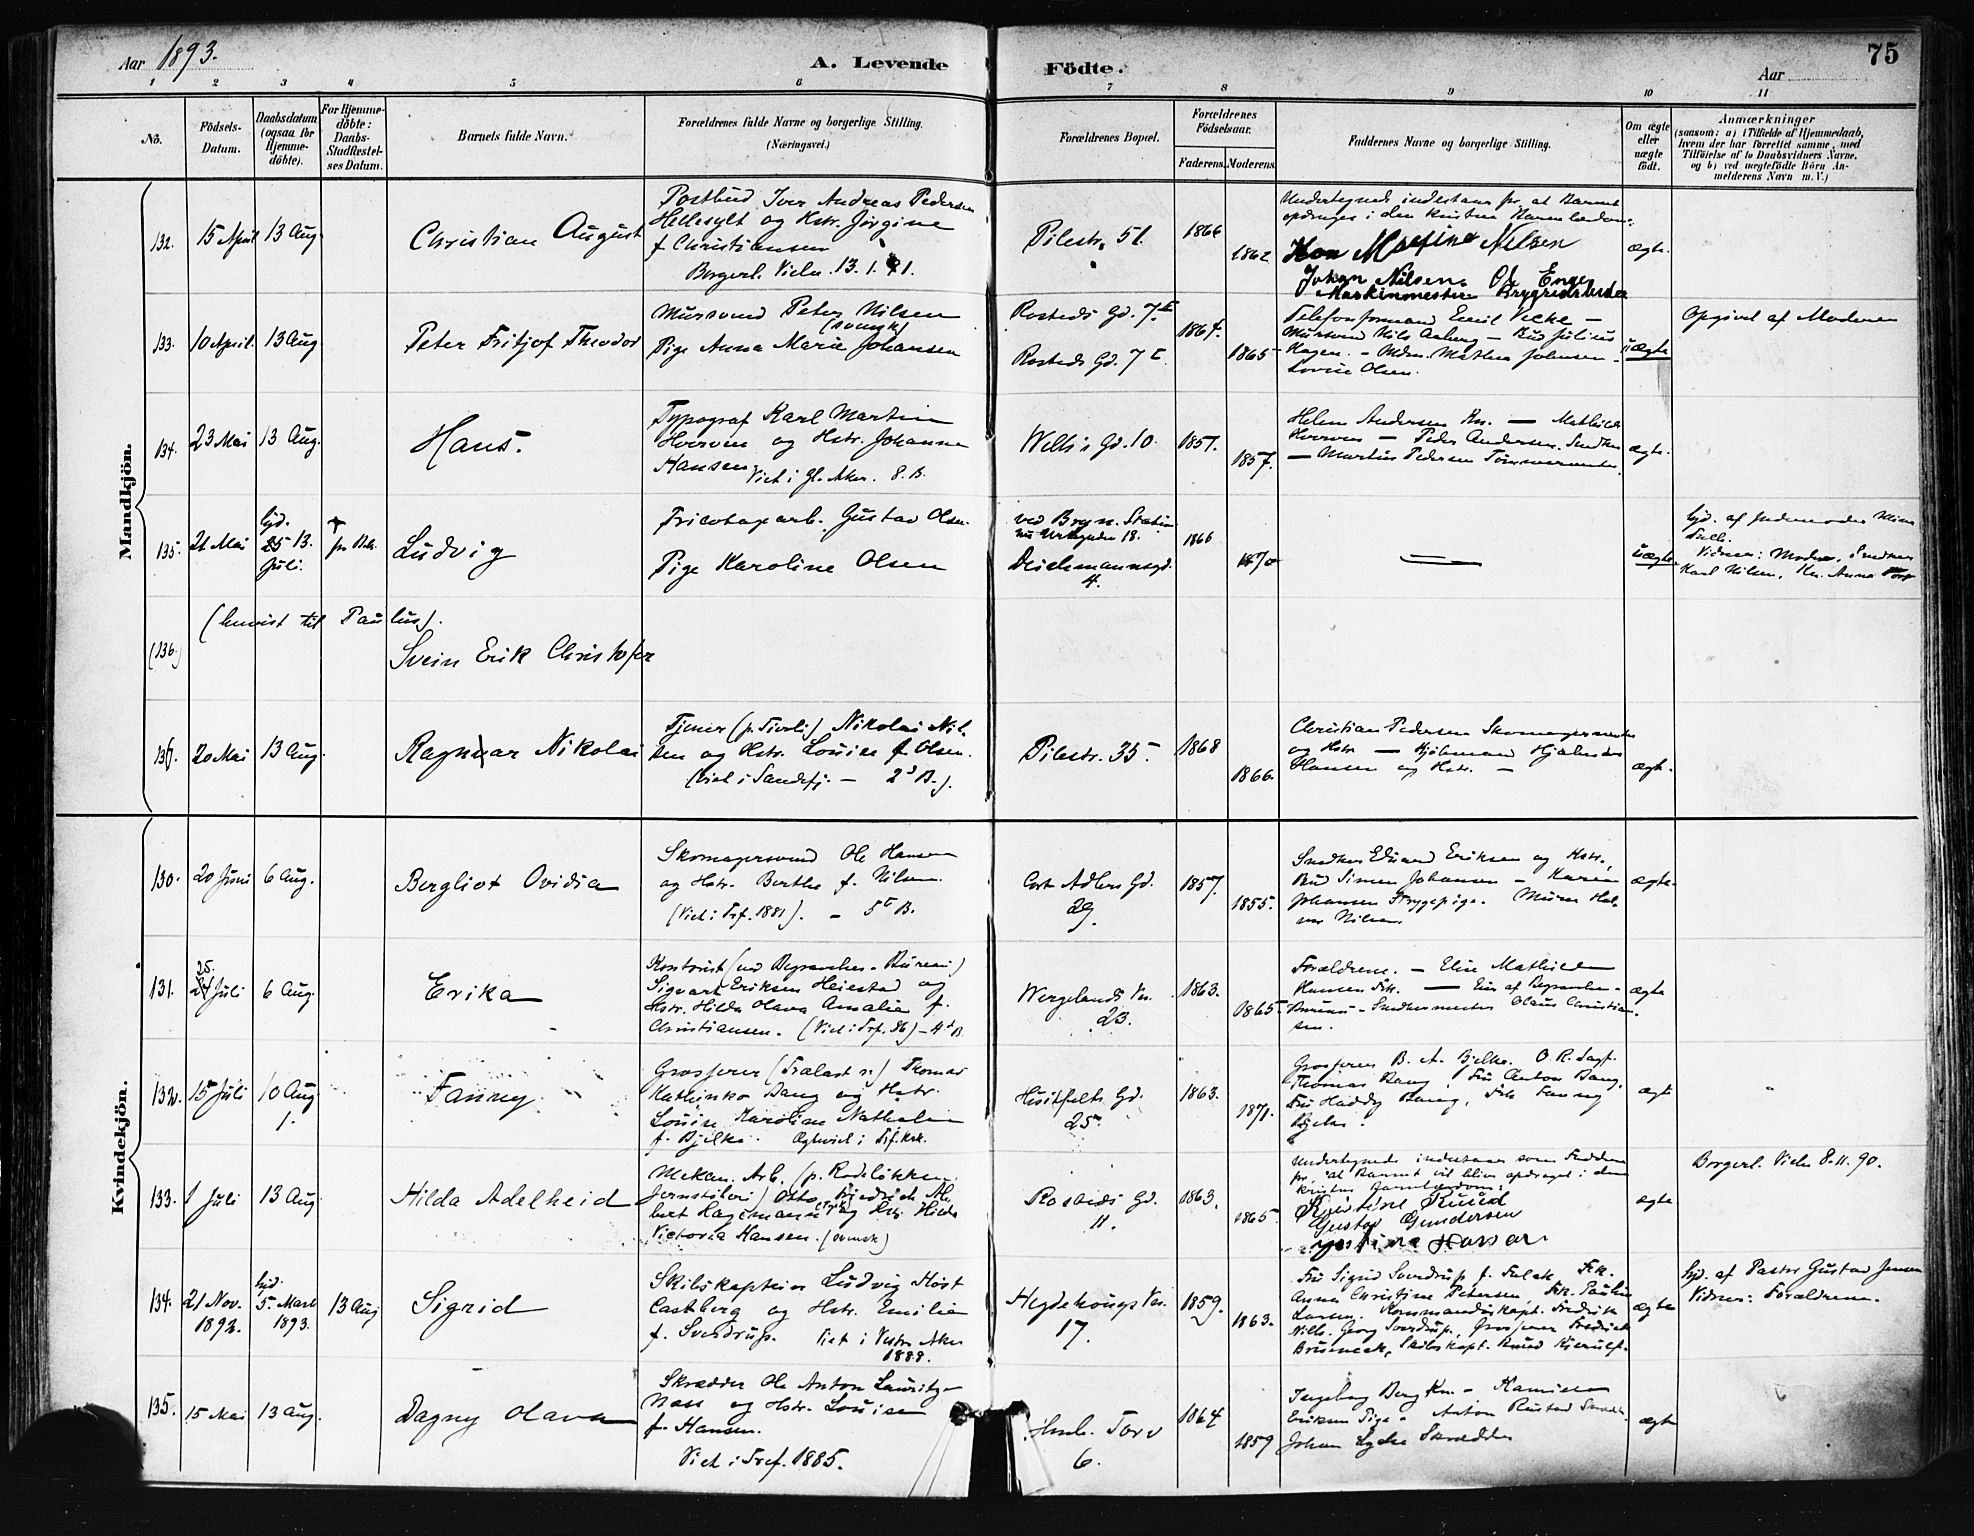 Aar 1893.
A. Levende
Födte.
Aar
75
1 2 3 4 5 6 7 8 9 10 11
No.
Födsels-
Datum.
Daabsdatum
(ogsaa for
Hjemme-
döbte).
For Hjemme-
döbte:
Daabs-
Stadfestel-
ses Datum.
Barnets fulde Navn.
Forældrenes fulde Navne og borgerlige Stilling.
(Næringsvei.)
Forældrenes Bopæl.
Forældrenes
Födselsaar.
Faderens. Moderens.
Faddernes Navne og borgerlige Stilling.
Om ægte
eller
uægte
födt.
Anmærkninger
(saasom: a) i Tilfælde af Hjemmedaab,
hvem der har forrettet samme, med
Tilföielse af to Daabsvidners Navne,
og b) ved uægtefödte Börn An-
melderens Navn m. V.)
Mandkjön.
132.
15 April
13 Aug.
Christian August
Postbud Iver Andreas Pedersen
Hellesylt og Hstr. Jørgine
f. Christiansen
Borgerl. Viede. 13.1.91.
Pilestr. 51.
1866
1862
Undertegnede indestaar for, at Barnet
opdrages i den kristne Barnelærdom:
Nelsen
Johan Nilsen
Maskinmester
ægte.
133.
10 April.
13 Aug
Peter Fritjof Theodor
Mursvend Peter Nilsen
(svensk)
Pige Anna Marie Johansen
Rosteds Gd. 7
Rosteds Gd. 7
1864.
1865
Telefonformand Emil
Mursvend Nils Aaberg — Bud Julius
Hagen. — Mdm. Mathea Johnsen
Lovise Olsen.
uægte
Opgivet af Moderen
134.
23 Mai
13 Aug.
Hans.
Typograf Karl Martin
og Hstr. Johanne
Hansen
Viet i Gl. Aker. 8. B.
Gd. 10.
1851.
1857.
Helene Andersen Kn. — Mathilde
— Peder Andersen. Snedker
— Martin Pedersen Tømmermester.
ægte.
135.
21 Mai
hjd.
13.
Juli.
Ludvig
Tricotagearb. Gustav Olsen.
Pige Karoline Olsen
ved Bryn. Station
18.
Deichmannsgd.
4.
1866
1870
uægte
hjd. af Jordemoder
Vidner: Moder, Snedker
Karl Nilsen, Kn. Anna
(136.)
(henvist til Paulus).
Svein Erik Christofer
136.
20 Mai
13 Aug.
Ragnvar Nikolai
Tjener (p. Tivoli) Nikolai Nil-
sen og Hstr. Louise f. Olsen.
(viet i Sandefj. — 2d B.).
Pilestr. 35.
1868
1866.
Christian Pedersen Skomagermester
og Hstr. — Hjalmar
Hansen og Hstr. —
ægte.
Kvindekjön.
130.
20 Juni
6 Aug.
Bergliot Ovidia
Skomagersvend Ole Hansen
og Hstr. Berthe f. Nilsen.
(Viet i Trf. 1881). — 5te B.
Cort Adlers Gd.
29.
1857.
1855.
Snedker Edvard Eriksen og Hstr.,
Bud Simen Johansen — Karen
Johansen Strygepige. Murer Hal-
vor Nilsen.
ægte.
131.
25.
24 Juli
6 Aug.
Erika
Kontorist (ved Begravelses-Bureau)
Sigvart Eriksen Heiestad og
Hstr. Hilda Olava Amalie f.
Christiansen. (Viet i Trf. 86) — 4d B.
Wergelands Vn.
23.
1863.
1865.
Forældrene. — Elise Mathilde
Hansen Frk. — Eier af Begravelses-
Bureau — Snedkermester Olaus Christian-
sen.
ægte
132.
15 Juli
10 Aug
Fanny
Grosserer (Trælast n.) Thomas
Kathinko Bang og Hstr.
Louise Karoline Nathalie
f. Bjelke. Ægteviet i Trf. Krk.
Huitfelts Gd.
25.
1863.
1871.
Grosserer B. A. Bjelke. O. R. Sagf.
Thomas Bang, Fru Anton Bang,
Fru Haddy Bang, Frk Fanny
Bjelke.
ægte
133.
1 Juli
13 Aug
Hilda Adelheid
Mekan. Arb. (p. Rodeløkken
Jernstøberi) Otto Fredrik Al-
bert Hagemann og Hstr. Hilda
Victoria Hansen. (svensk)
Rosteds Gd.
11.
1863.
1865.
Undertegnede indestaar som Faddere
for, at Barnet vil blive opdraget i den
kristne Barnelærdom:
Kristine Ruud
Gustav Gundersen
ægte
Borgerl. Viede 8.11.90.
134.
21 Nov.
1892.
hjd.
5. Marts
1893.
13 Aug
Sigrid
Skibskaptein Ludvig Høst
Castberg og Hstr. Emilie
f. Sverdrup. Viet i Vestre Aker
1888.
Hegdehaugs Vn.
17.
1859.
1863.
Fru Sigrid Sverdrup f. Falck. Frk.
Anna Christine Petersen, Frk. Pauline
Kommandørkapt. Fredrik
Wilh. Georg Sverdrup, Grosserer Fredrik
Skibskapt. Knud Kierulf.
ægte
hjd. af Pastor Gustav Jensen
Vidner: Forældrene.
135.
15 Mai
13 Aug.
Dagny Olava
Skrædder Ole Anton Lauritz
Næss og Hstr. Louise
f. Hansen.
Viet i Tref. 1885.
Torv
6.
1864
1859
Ingeborg Berg Kn. —
Eriksen Pige — Anton Rustad
Johan Lycke Skrædder
ægte